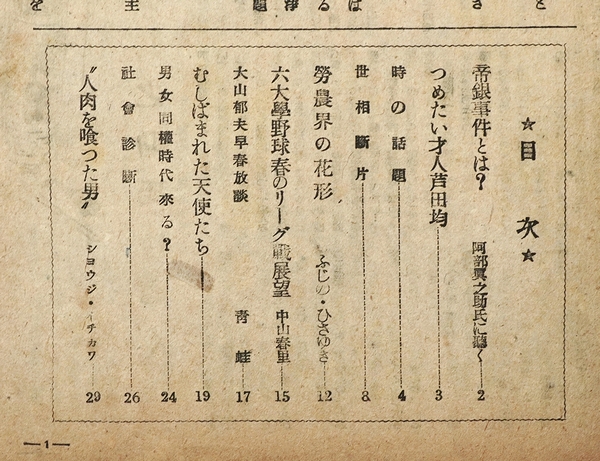 ☆目次☆
帝銀事件とは？ 阿部眞之助氏に聽く 2
つめたい才人芦田均 3
時の話題 4
世相斷片 8
勞農界の花形 ふじの・ひさゆき 12
六大學野球春のリーグ戰展望 中山春里 15
大山郁夫早春放談 靑蛙 17
むしばまれた天使たち 19
男女同權時代來る？ 24
社會診斷 26
〝人肉を喰つた男〟 シヨウジ・イチカワ 29
—1—